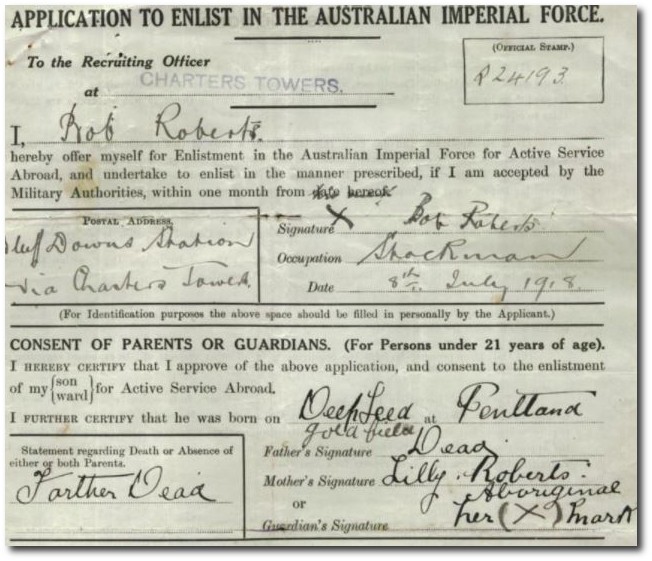 APPLICATION TO ENLIST IN THE AUSTRALIAN IMPERIAL FORCE.
To the Recruiting Officer
(OFFICIAL STAMP.)
R24193
at CHARTERS TOWERS.
I, Bob Roberts.
hereby offer myself for Enlistment in the Australian Imperial Force for Active Service
Abroad, and undertake to enlist in the manner prescribed, if I am accepted by the
Military Authorities, within one month from date hereof.
POSTAL ADDRESS.
Bluff Downs Station
via Charters Towers.
Signature X Bob Roberts.
Occupation Stockman
Date 8th July 1918.
(For Identification purposes the above space should be filled in personally by the Applicant.)
CONSENT OF PARENTS OR GUARDIANS. (For Persons under 21 years of age).
I HEREBY CERTIFY that I approve of the above application, and consent to the enlistment
of my {son
ward} for Active Service Abroad.
I FURTHER CERTIFY that he was born on Deep Leed at Pentland
gold field
Statement regarding Death or Absence of
either or both Parents.
Farther Dead
Father's Signature Dead
Mother's Signature Lilly Roberts.
Aboriginal
or
her (X) mark
Guardian's Signature